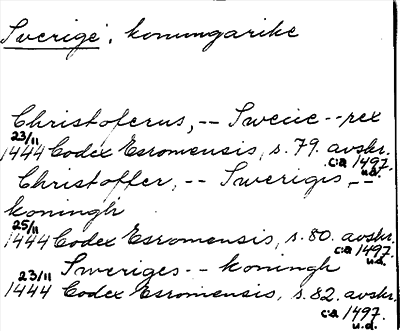 Sverige, konungarike
Christoferus, -- Swecie -- rex
23/11
1444 Codex Esromensis, s. 79. avskr.
c:a 1497.
u.d.
Christoffer, -- Sweriges --
koningh
25/11
1444 Codex Esromensis, s. 80. avskr.
c:a 1497.
u.d.
Sweriges -- koningh
23/11
1444 Codex Esromensis, s. 82. avskr.
c:a 1497.
u.d.